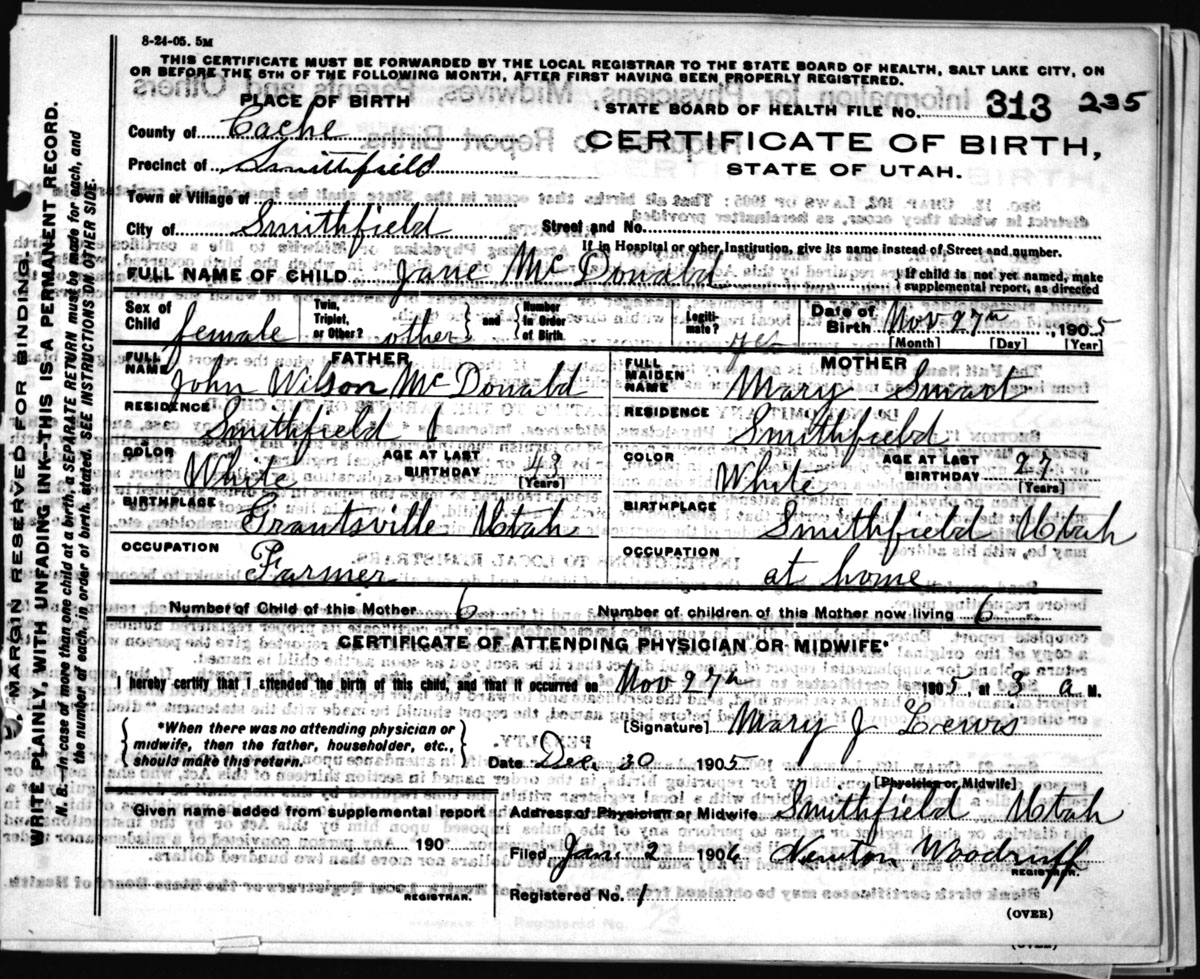 8-24-05. 5M
THIS CERTIFICATE MUST BE FORWARDED BY THE LOCAL REGISTRAR TO THE STATE BOARD OF HEALTH, SALT LAKE CITY, ON
OR BEFORE THE 5TH OF THE FOLLOWING MONTH, AFTER FIRST HAVING BEEN PROPERLY REGISTERED.
PLACE OF BIRTH
STATE BOARD OF HEALTH FILE NO. 313 235
County of Cache
CERTIFICATE OF BIRTH,
Precinct of Smithfield
STATE OF UTAH.
Town or Village of
City of Smithfield Street and No.
If in Hospital or other Institution, give its name instead of Street and number.
FULL NAME OF CHILD Jane McDonald { If child is not yet named, make
supplemental report, as directed
Sex of Child female
Twin, Triplet, or Other? other } and { Number in Order of Birth.
Legitimate? yes
Date of Birth Nov 27th, 1905
[Month] [Day] [Year]
FATHER
FULL NAME John Wilson McDonald
MOTHER
FULL MAIDEN NAME Mary Smart
RESIDENCE Smithfield
RESIDENCE Smithfield
COLOR White AGE AT LAST BIRTHDAY 43 [Years]
COLOR White AGE AT LAST BIRTHDAY 27 [Years]
BIRTHPLACE Grantsville Utah
BIRTHPLACE Smithfield Utah
OCCUPATION Farmer
OCCUPATION at home
Number of Child of this Mother 6 Number of children of this Mother now living 6
CERTIFICATE OF ATTENDING PHYSICIAN OR MIDWIFE*
I hereby certify that I attended the birth of this child, and that it occurred on Nov 27th 1905 at 3 a. M.
{ *When there was no attending physician or
midwife, then the father, householder, etc.,
should make this return. }
[Signature] Mary J Lewis
Date Dec 30 1905
[Physician or Midwife]
Given name added from supplemental report
190
REGISTRAR.
Address of Physician or Midwife Smithfield Utah
Filed Jan. 2 1906 Newton Woodruff
REGISTRAR.
Registered No. 1
(OVER)
(OVER)
MARGIN RESERVED FOR BINDING.
WRITE PLAINLY, WITH UNFADING INK—THIS IS A PERMANENT RECORD.
N. B.—In case of more than one child at a birth, a SEPARATE RETURN must be made for each, and
the number of each, in order of birth, stated. SEE INSTRUCTIONS ON OTHER SIDE.